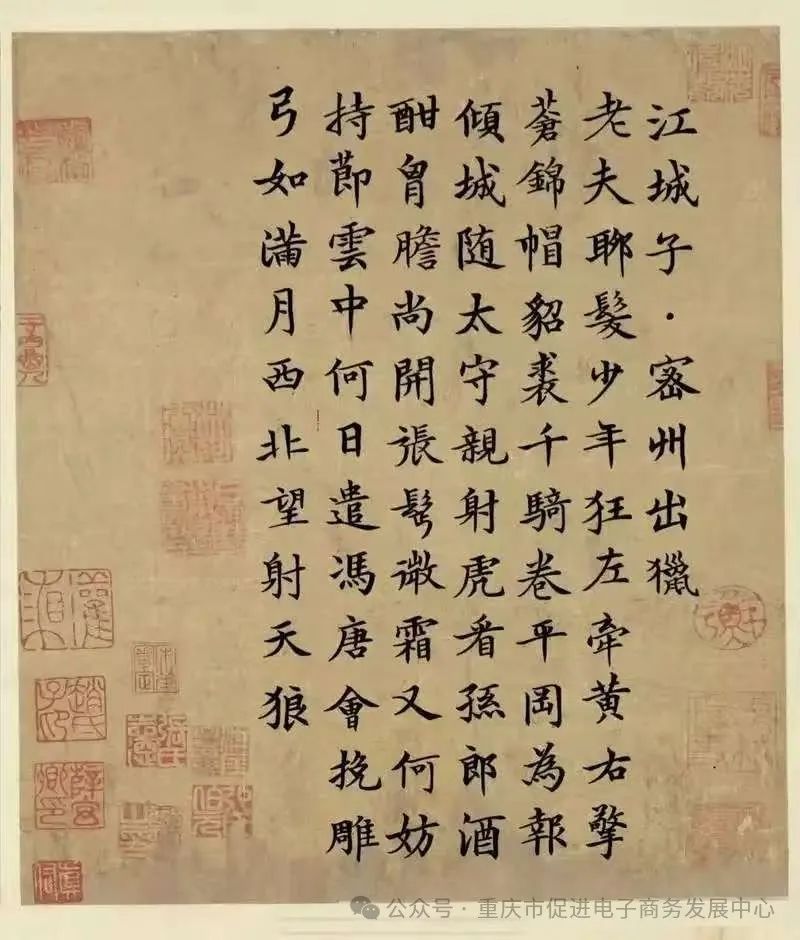 江城子·密州出獵
老夫聊髮少年狂左牽黄右擎
蒼錦帽貂裘千騎卷平岡為報
傾城随太守親射虎看孫郎酒
酣胷膽尚開張鬢微霜又何妨
持莭雲中何日遣馮唐會挽雕
弓如滿月西北望射天狼
公众号 · 重庆市促进电子商务发展中心